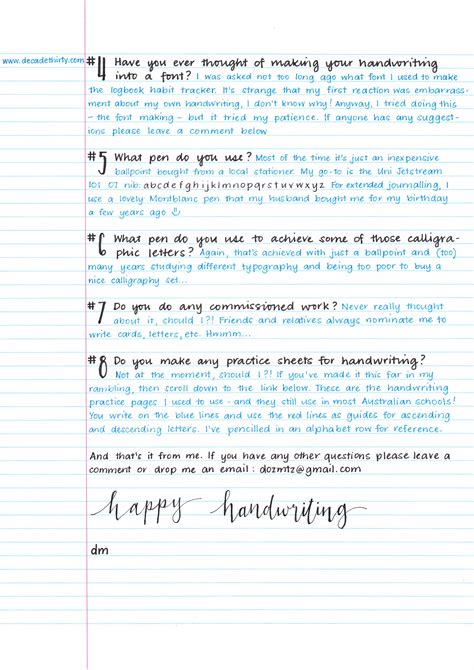 www.decadethirty.com
#4 Have you ever thought of making your handwriting
into a font? I was asked not too long ago what font I used to make
the logbook habit tracker. It's strange that my first reaction was embarrass-
ment about my own handwriting, I don't know why! Anyway, I tried doing this
- the font making - but it tried my patience. If anyone has any suggest-
ions please leave a comment below
#5 What pen do you use? Most of the time it's just an inexpensive
ballpoint bought from a local stationer. My go-to is the Uni Jetstream
101 07 nib: abcdefghijklmnopqrstuvwxyz For extended journalling, I
use a lovely Montblanc pen that my husband bought me for my birthday
a few years ago ☺
#6 What pen do you use to achieve some of those calligra-
phic letters? Again, that's achieved with just a ballpoint and (too)
many years studying different typography and being too poor to buy a
nice calligraphy set...
#7 Do you do any commissioned work? Never really thought
about it, should I?! Friends and relatives always nominate me to
write cards, letters, etc. Hmmm...
#8 Do you make any practice sheets for handwriting?
Not at the moment, should I?! If you've made it this far in my
rambling, then scroll down to the link below. These are the handwriting
practice pages I used to use - and they still use in most Australian schools!
You write on the blue lines and use the red lines as guides for ascending
and descending letters. I've pencilled in an alphabet row for reference.
And that's it from me. If you have any other questions please leave a
comment or drop me an email : dozmtz@gmail.com
happy handwriting
dm